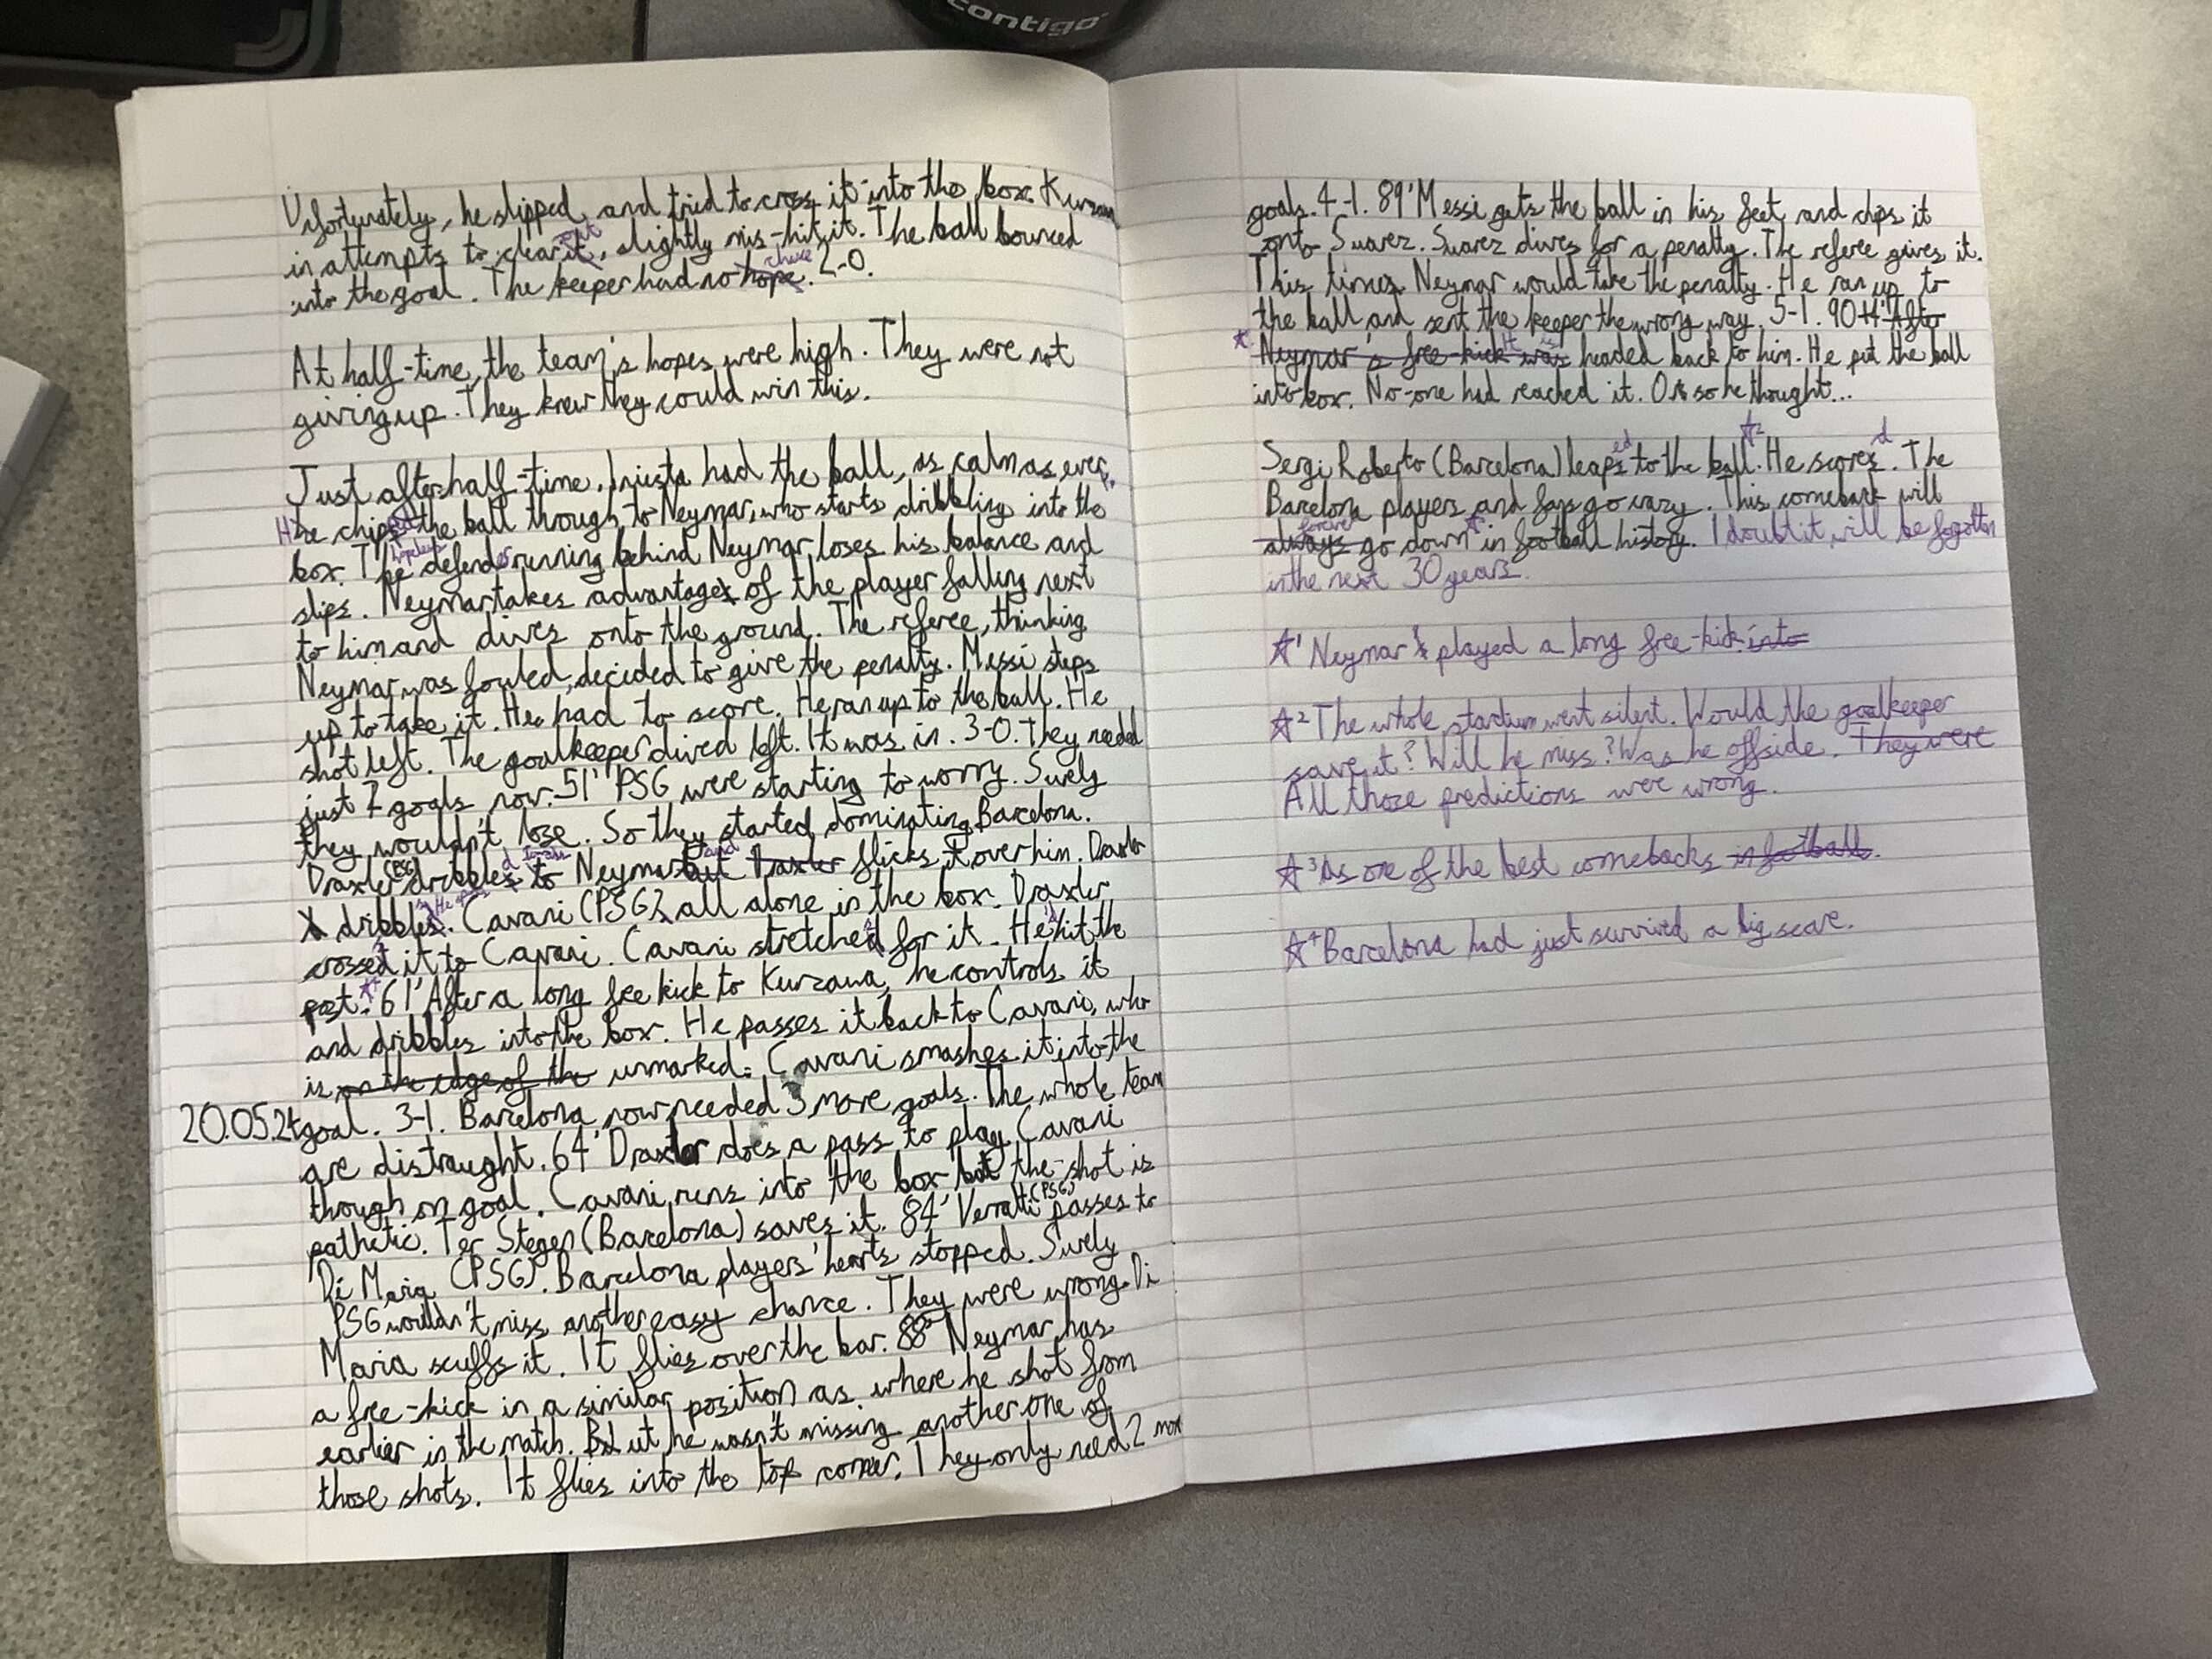 contigo
Unfortunately, he slipped and tried to cross it into the box. Kurzawa
in attempts to clear it out, slightly mis-hit it. The ball bounced
into the goal. The keeper had no hope chance. 2-0.
At half-time, the team's hopes were high. They were not
giving up. They knew they could win this.
Just after half-time, Iniesta had the ball, as calm as ever.
He chipped the ball through to Neymar, who starts dribbling into the
box. The hopeless defender running behind Neymar loses his balance and
slips. Neymar takes advantage of the player falling next
to him and dives onto the ground. The referee, thinking
Neymar was fouled, decided to give the penalty. Messi steps
up to take it. He had to score. He ran up to the ball. He
shot left. The goalkeeper dived left. It was in. 3-0. They needed
just 2 goals now. 51' PSG were starting to worry. Surely
they wouldn't lose. So they started dominating Barcelona.
Draxler (PSG) dribbled towards to Neymar but and Draxler flicks it over him. Draxler
dribbles. Cavani (PSG), all alone in the box. Draxler
crossed it to Cavani. Cavani stretched for it. He'd hit the
post. ☆4 61' After a long free kick to Kurzawa, he controls it
and dribbles into the box. He passes it back to Cavani, who
is on the edge of the unmarked. Cavani smashes it into the
20.05.24 goal. 3-1. Barcelona now needed 3 more goals. The whole team
are distraught. 64' Draxler does a pass to play Cavani
though on goal. Cavani runs into the box but the shot is
pathetic. Ter Stegen (Barcelona) saves it. 84' Verratti (PSG) passes to
Di Maria (PSG). Barcelona players' hearts stopped. Surely
PSG wouldn't miss another easy chance. They were wrong. Di
Maria scuffs it. It flies over the bar. 88' Neymar has
a free-kick in a similar position as where he shot from
earlier in the match. But he wasn't missing another one of
those shots. It flies into the top corner. They only need 2 more
goals. 4-1. 89' Messi gets the ball in his feet and chips it
onto Suarez. Suarez dives for a penalty. The referee gives it.
This times Neymar would take the penalty. He ran up to
the ball and sent the keeper the wrong way. 5-1. 90+4' After
☆ Neymar's free-kick was It is headed back to him. He put the ball
into box. No-one had reached it. Or so he thought...
Sergi Roberto (Barcelona) leaped to the ball. ☆2 He scored. The
Barcelona players and fans go crazy. This comeback will
always forever go down ☆3 in football history. I doubt it will be fogotten
in the next 30 years.
☆1 Neymar played a long free-kick into
☆2 The whole stadium went silent. Would the goalkeeper
save it? Will he miss? Was he offside. They were
All those predictions were wrong.
☆3 As one of the best comebacks in football.
☆4 Barcelona had just survived a big scare.